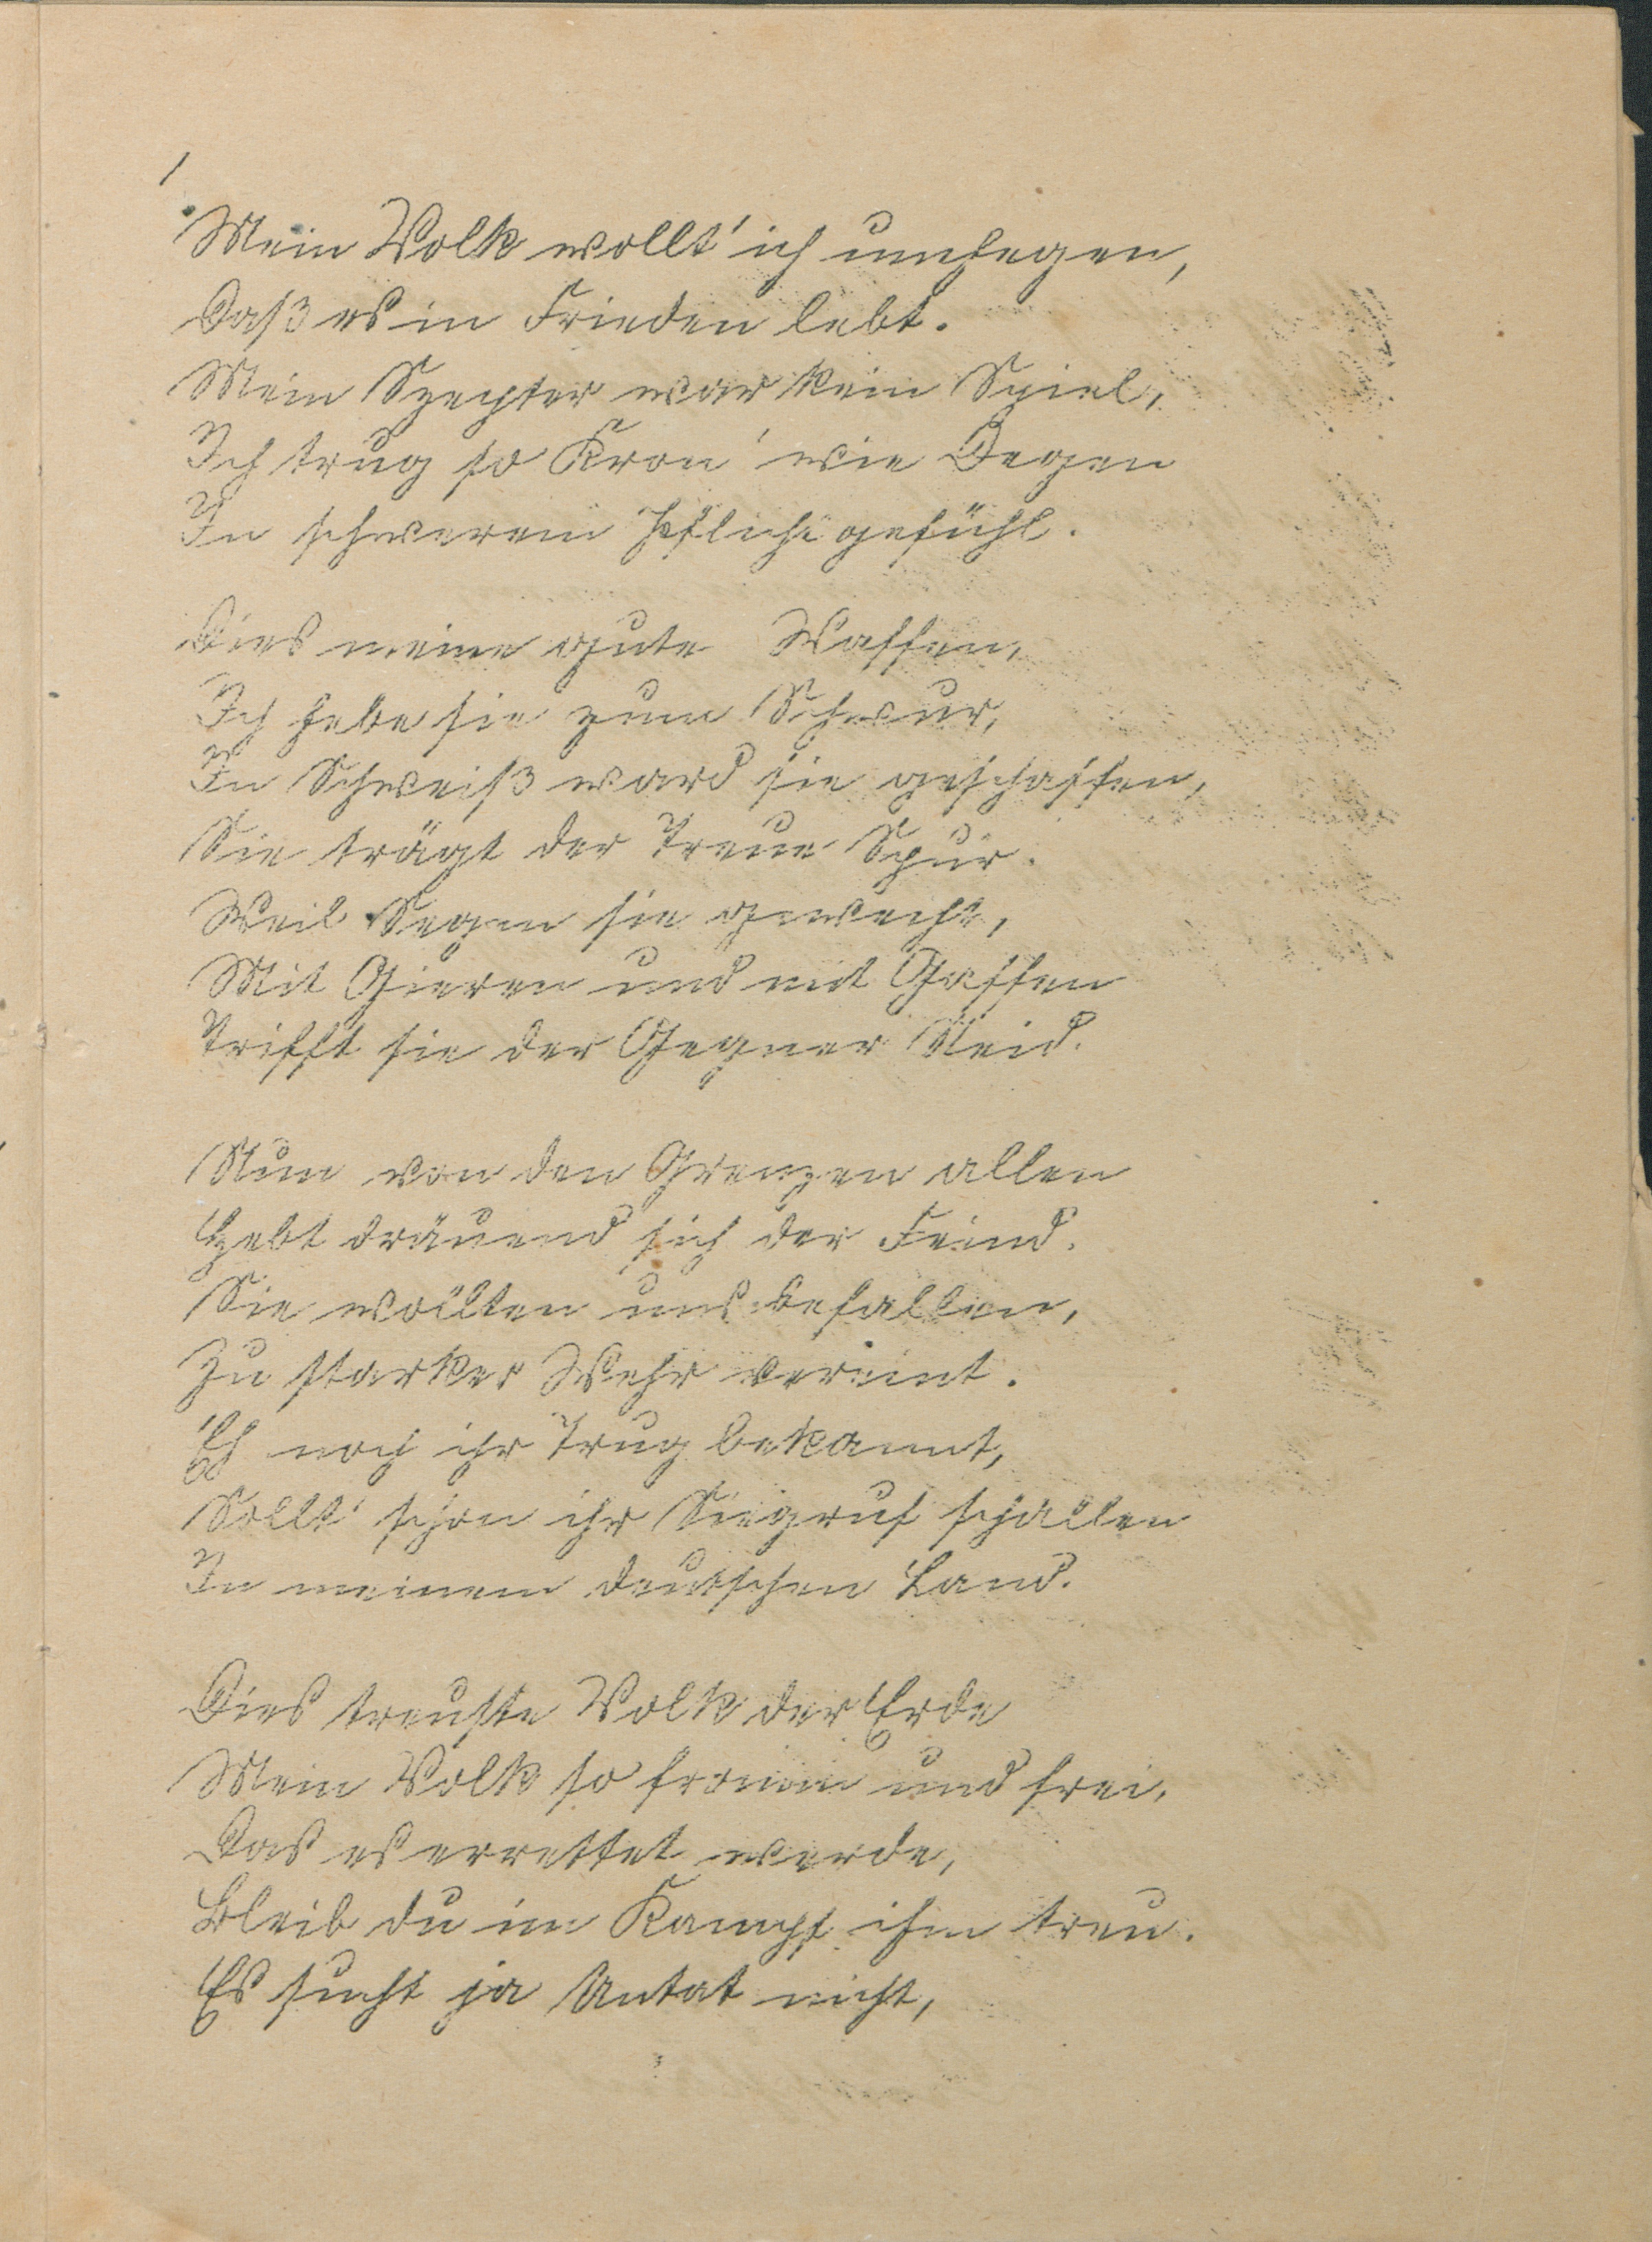 Mein Volk wollt' ich umhegen,
Daß es in Frieden lebt.
Mein Szepter war kein Spiel,
Ich trug so Kron' wie Degen
In schwerem Pflichtgefühl.
Dies meine gute Waffen,
Ich hebe sie zum Schwur,
In Schweiß ward sie geschaffen,
Sie trägt der Treue Spur.
Weil Segen sie geweiht,
Mit Gieren und mit Gaffen
Trifft sie der Gegner Neid.
Nun von den Grenzen allen
Hebt dräuend sich der Feind.
Sie wollten uns befallen,
Zu starker Wehr vereint.
Eh noch ihr Trug bekannt,
Sollt' schon ihr Siegruf schallen
In meinem deutschen Land.
Dies treuste Volk der Erde
Mein Volk so fromm und frei,
Das es errettet werde,
Bleib du im Kampf ihm treu.
Es sucht ja Untat nicht,